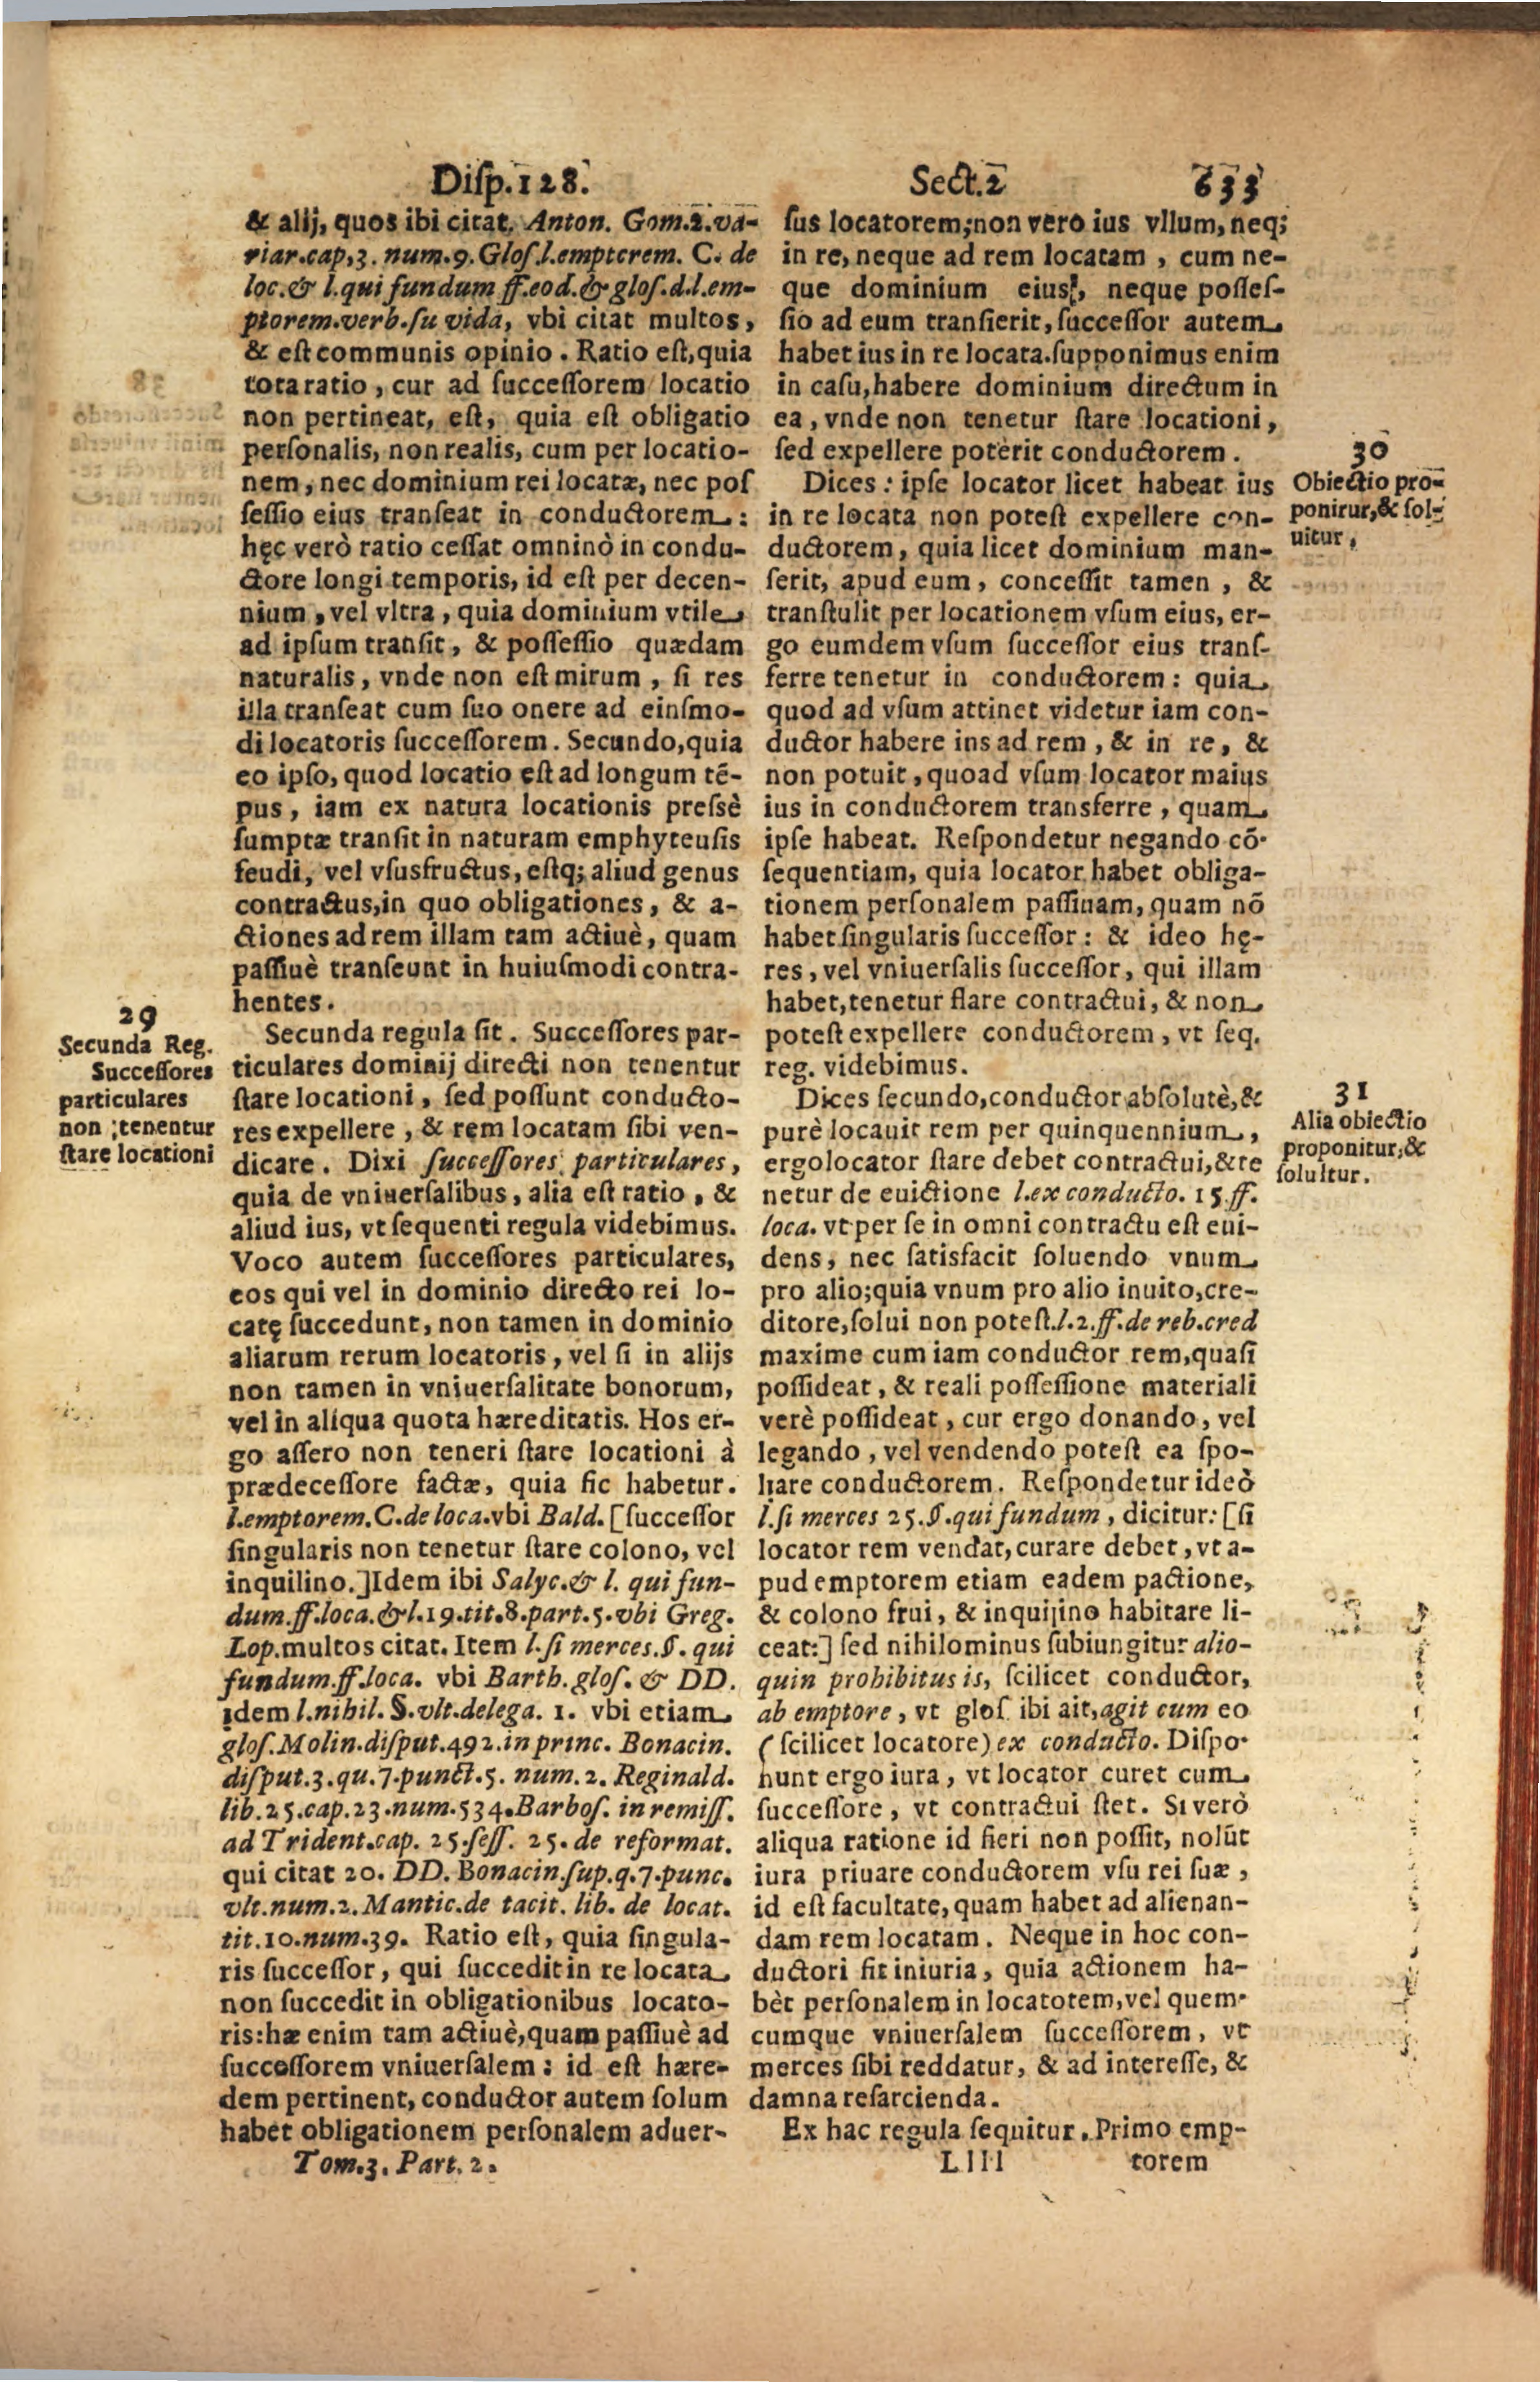 Disp.128. Sect.2 633
& alij, quos ibi citat. Anton. Gom.2.va-
riar.cap,3. num.9.Glos.l.emptcrem. C. de
loc.& l.qui fundum ff.eod.& glos.d.l.em-
ptorem.verb.su vida, vbi citat multos,
& est communis opinio. Ratio est, quia
tota ratio, cur ad successorem locatio
non pertineat, est, quia est obligatio
personalis, non realis, cum per locatio-
nem, nec dominium rei locatæ, nec pos
sessio eius transeat in conductorem:
hęc verò ratio cessat omninò in condu-
ctore longi temporis, id est per decen-
nium, vel vltra, quia dominium vtile
ad ipsum transit, & possessio quædam
naturalis, vnde non est mirum, si res
illa transeat cum suo onere ad einsmo-
di locatoris successorem. Secundo, quia
eo ipso, quod locatio est ad longum tē-
pus, iam ex natura locationis pressè
sumptæ transit in naturam emphyteusis
feudi, vel vsusfructus, estq; aliud genus
contractus, in quo obligationes, & a-
ctiones ad rem illam tam actiuè, quam
passiuè transeunt in huiusmodi contra-
hentes.
29
Secunda Reg.
Successores
particulares
non ;tenentur
stare locationi
Secunda regula sit. Successores par-
ticulares dominij directi non tenentur
stare locationi, sed possunt conducto-
res expellere, & rem locatam sibi ven-
dicare. Dixi successores particulares,
quia de vniuersalibus, alia est ratio, &
aliud ius, vt sequenti regula videbimus.
Voco autem successores particulares,
eos qui vel in dominio directo rei lo-
catę succedunt, non tamen in dominio
aliarum rerum locatoris, vel si in alijs
non tamen in vniuersalitate bonorum,
vel in aliqua quota hæreditatis. Hos er-
go assero non teneri stare locationi à
prædecessore factæ, quia sic habetur.
l.emptorem.C.de loca.vbi Bald. [successor
singularis non tenetur stare colono, vel
inquilino.]Idem ibi Salyc.& l. qui fun-
dum.ff.loca.& l.19.tit.8.part.5.vbi Greg.
Lop.multos citat. Item l.si merces.§. qui
fundum.ff.loca. vbi Barth.glos. & DD.
idem l.nihil. §.vlt.delega. 1. vbi etiam
glos.Molin.disput.492.in princ. Bonacin.
disput.3.qu.7.punct.5. num.2. Reginald.
lib.25.cap.23.num.534.Barbos. in remiss.
ad Trident.cap. 25.sess. 25. de reformat.
qui citat 20. DD. Bonacin.sup.q.7.punc.
vlt.num.2.Mantic.de tacit. lib. de locat.
tit.10.num.39. Ratio est, quia singula-
ris successor, qui succedit in re locata
non succedit in obligationibus locato-
ris:hæ enim tam actiuè,quam passiuè ad
successorem vniuersalem: id est hære-
dem pertinent, conductor autem solum
habet obligationem personalem aduer-
Tom.3. Part. 2.
sus locatorem;non vero ius vllum, neq;
in re, neque ad rem locatam, cum ne-
que dominium eius, neque posses-
sio ad eum transierit, successor autem
habet ius in re locata.supponimus enim
in casu, habere dominium directum in
ea, vnde non tenetur stare locationi,
sed expellere poterit conductorem.
30
Obiectio pro-
ponirur,& sol-
uitur,
Dices: ipse locator licet habeat ius
in re locata non potest expellere con-
ductorem, quia licet dominium man-
serit, apud eum, concessit tamen, &
transtulit per locationem vsum eius, er-
go eumdem vsum successor eius trans-
ferre tenetur in conductorem: quia
quod ad vsum attinet videtur iam con-
ductor habere ins ad rem, & in re, &
non potuit, quoad vsum locator maius
ius in conductorem transferre, quam
ipse habeat. Respondetur negando cō-
sequentiam, quia locator habet obliga-
tionem personalem passiuam, quam nō
habet singularis successor: & ideo hę-
res, vel vniuersalis successor, qui illam
habet, tenetur stare contractui, & non
potest expellere conductorem, vt seq.
reg. videbimus.
31
Alia obiectio
proponitur,&
soluitur.
Dices secundo, conductor absolutè,&
purè locauit rem per quinquennium,
ergo locator stare debet contractui,& te
netur de euictione l.ex conducto. 15.ff.
loca. vt per se in omni contractu est eui-
dens, nec satisfacit soluendo vnum
pro alio;quia vnum pro alio inuito, cre-
ditore, solui non potest.l.2.ff.de reb.cred
maxime cum iam conductor rem, quasi
possideat, & reali possessione materiali
verè possideat, cur ergo donando, vel
legando, vel vendendo potest ea spo-
liare conductorem. Respondetur ideò
l.si merces 25.§.qui fundum, dicitur: [si
locator rem vendat, curare debet, vt a-
pud emptorem etiam eadem pactione,
& colono frui, & inquilino habitare li-
ceat:] sed nihilominus subiungitur alio-
quin prohibitus is, scilicet conductor,
ab emptore, vt glos. ibi ait, agit cum eo
(scilicet locatore) ex conducto. Dispo-
nunt ergo iura, vt locator curet cum
successore, vt contractui stet. Si verò
aliqua ratione id fieri non possit, nolūt
iura priuare conductorem vsu rei suæ,
id est facultate, quam habet ad alienan-
dam rem locatam. Neque in hoc con-
ductori fit iniuria, quia actionem ha-
bèt personalem in locatotem, vel quem-
cumque vniuersalem successorem, vt
merces sibi reddatur, & ad interesse, &
damna resarcienda.
Ex hac regula sequitur. Primo emp-
Llll torem